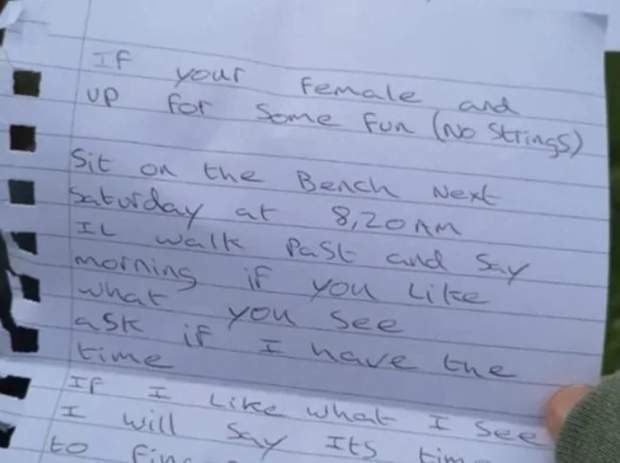 If your Female and
up for some fun (No Strings)
Sit on the Bench Next
Saturday at 8,20 AM
Il walk past and say
morning if you like
what you see
ask if I have the
time
If I like what I see
I will say Its time
to